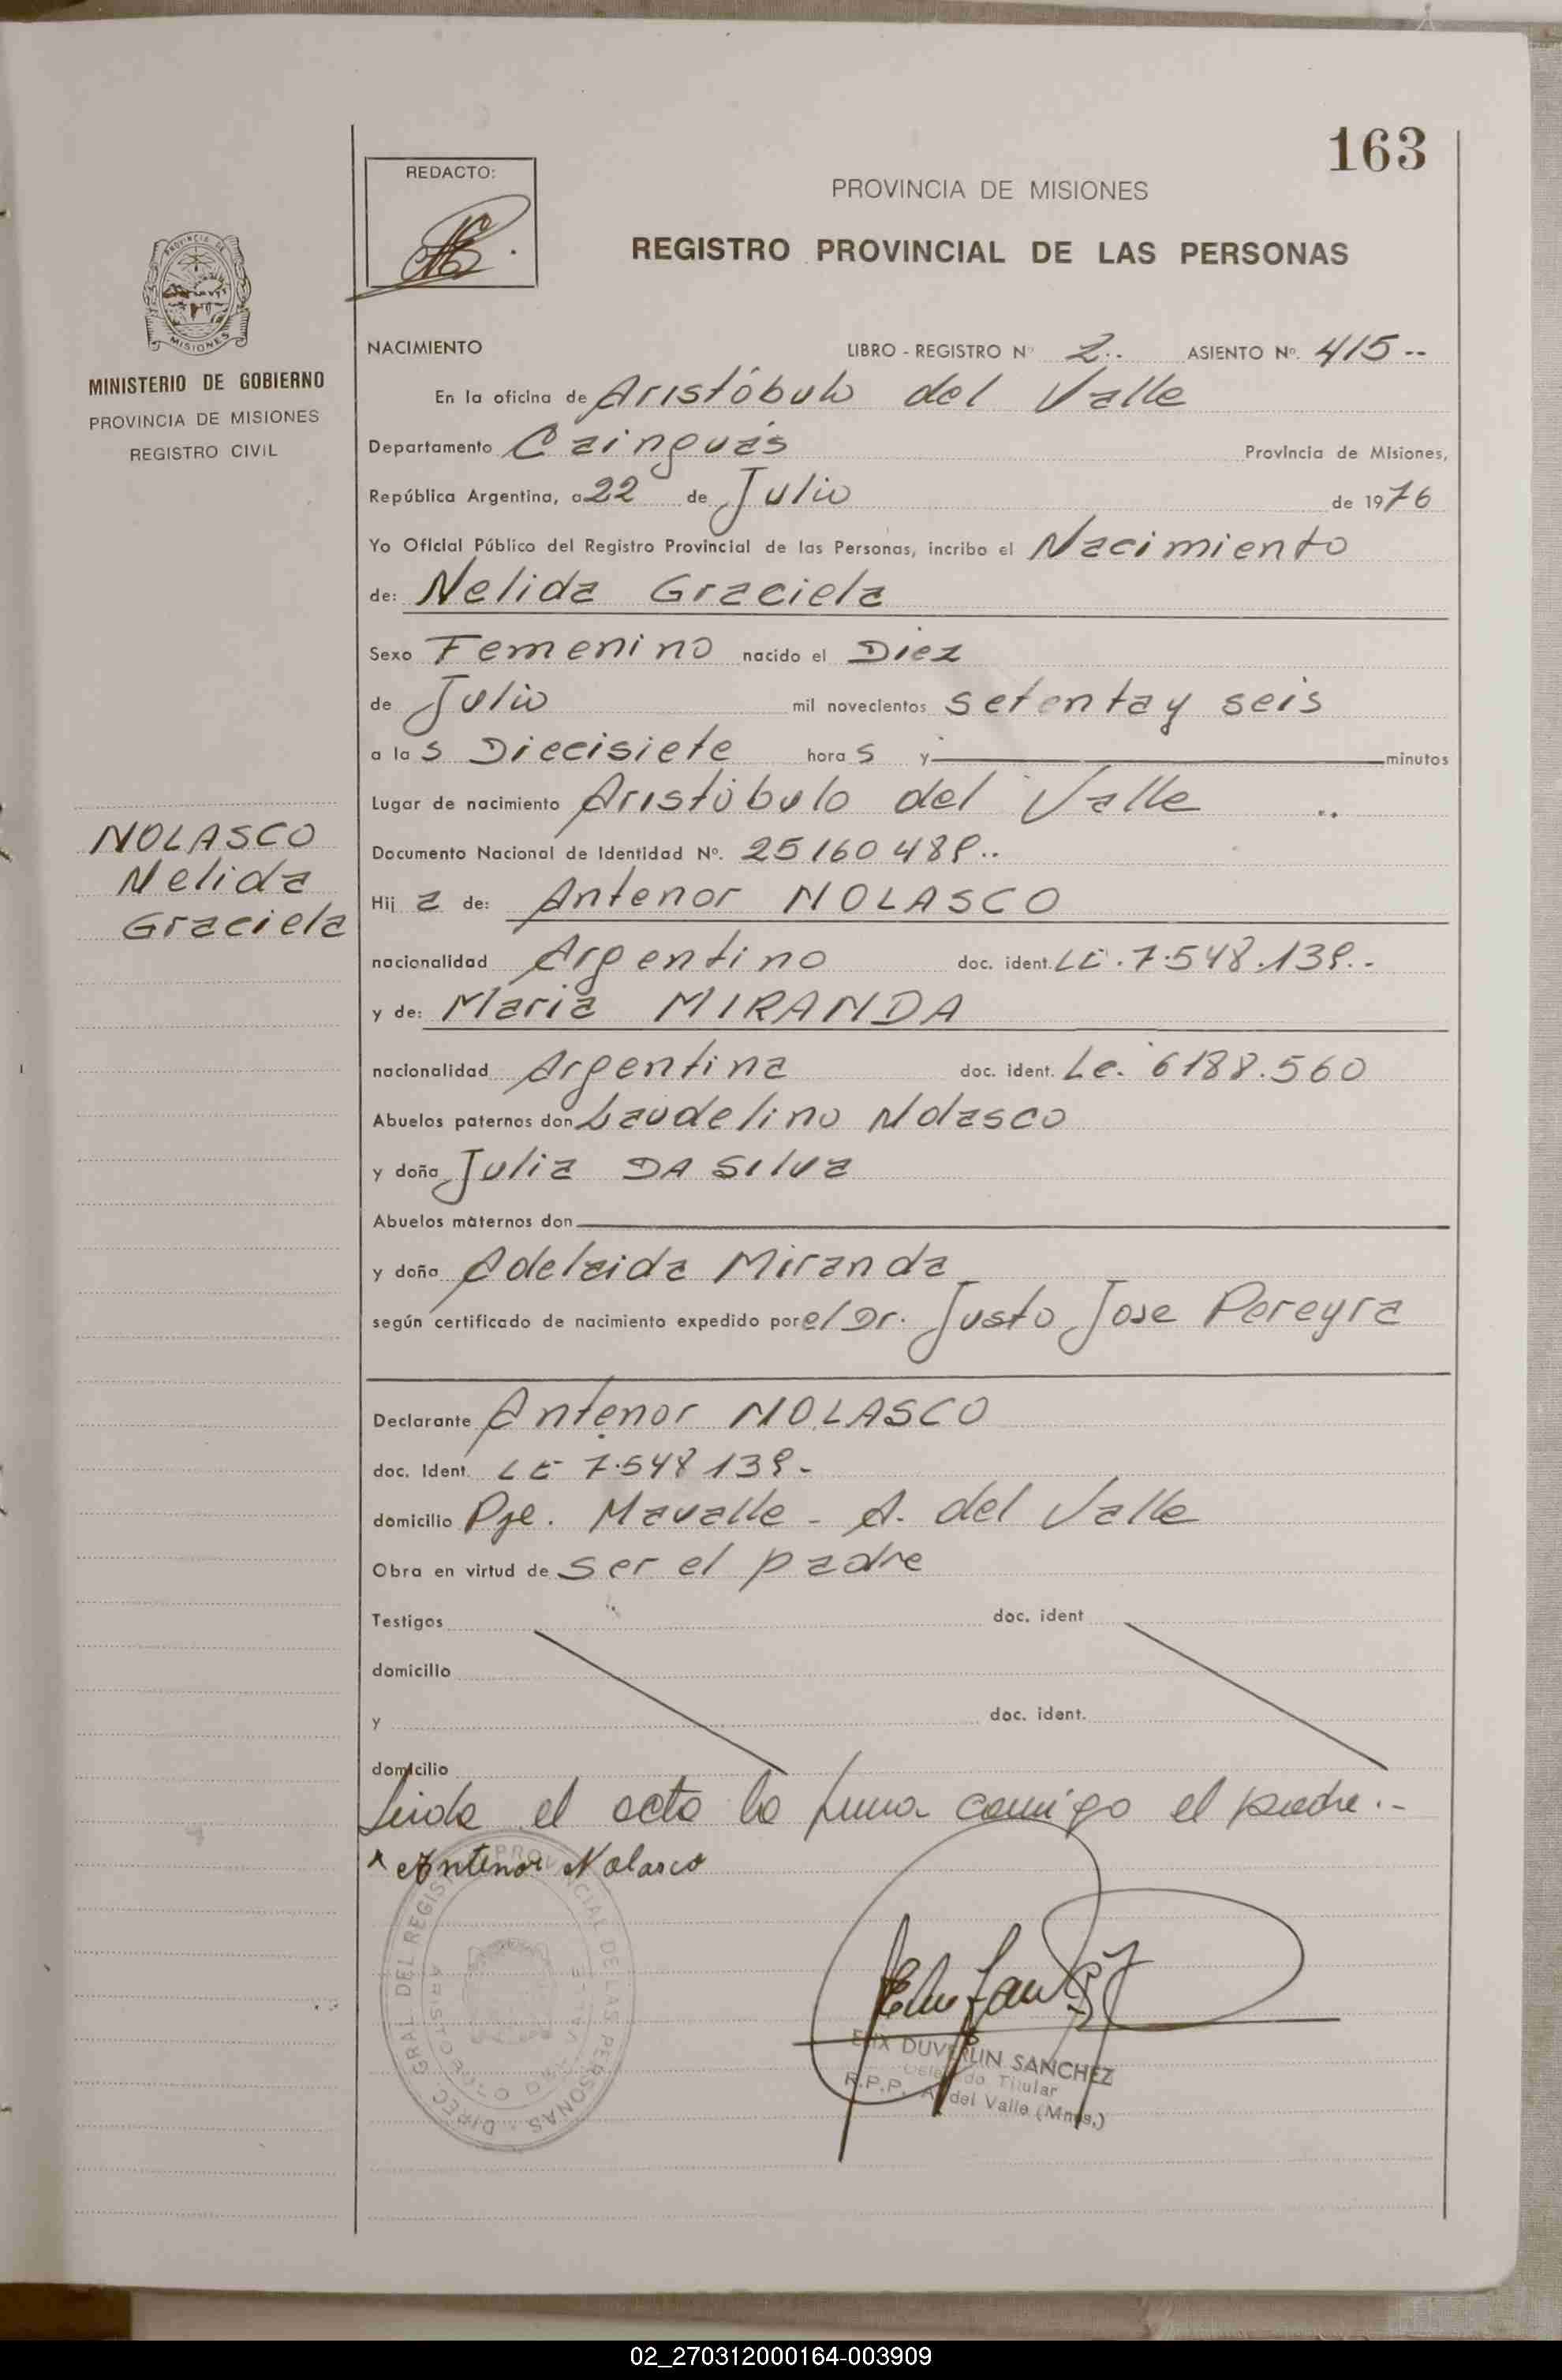 163
REDACTO:
PROVINCIA DE MISIONES
REGISTRO PROVINCIAL DE LAS PERSONAS
PROVINCIA DE
MISIONES
MINISTERIO DE GOBIERNO
PROVINCIA DE MISIONES
REGISTRO CIVIL
NACIMIENTO LIBRO - REGISTRO Nº 2.. ASIENTO Nº. 415--
En la oficina de Aristóbulo del Valle
Departamento Cainguás Provincia de Misiones,
República Argentina, a 22 de Julio de 1976
Yo Oficial Público del Registro Provincial de las Personas, incribo el Nacimiento
de: Nelida Graciela
Sexo Femenino nacido el Diez
de Julio mil novecientos setenta y seis
a las Diecisiete horas y minutos
Lugar de nacimiento Aristóbulo del Valle ..
NOLASCO
Nelida
Graciela
Documento Nacional de Identidad Nº. 25160489..
Hija de: Antenor NOLASCO
nacionalidad Argentino doc. ident. LE.7.548.139.-
y de: Maria MIRANDA
nacionalidad Argentina doc. ident. Lc. 6188.560
Abuelos paternos don Laudelino Nolasco
y doña Julia DA SILVA
Abuelos maternos don
y doña Adelaida Miranda
según certificado de nacimiento expedido por el Dr. Justo Jose Pereyra
Declarante Antenor NOLASCO
doc. Ident. LE 7.548139-
domicilio Pje. Mavalle - A. del Valle
Obra en virtud de ser el padre
Testigos doc. ident
domicilio
y doc. ident.
domicilio
Leida el acta la firma comigo el padre.-
Antenor Nolasco
DIREC. GRAL. DEL REGISTRO PROVINCIAL DE LAS PERSONAS
ARISTOBULO DEL VALLE
DUVERLIN SANCHEZ
Delegado Titular
R.P.P. A. del Valle (Mnes.)
02_270312000164-003909